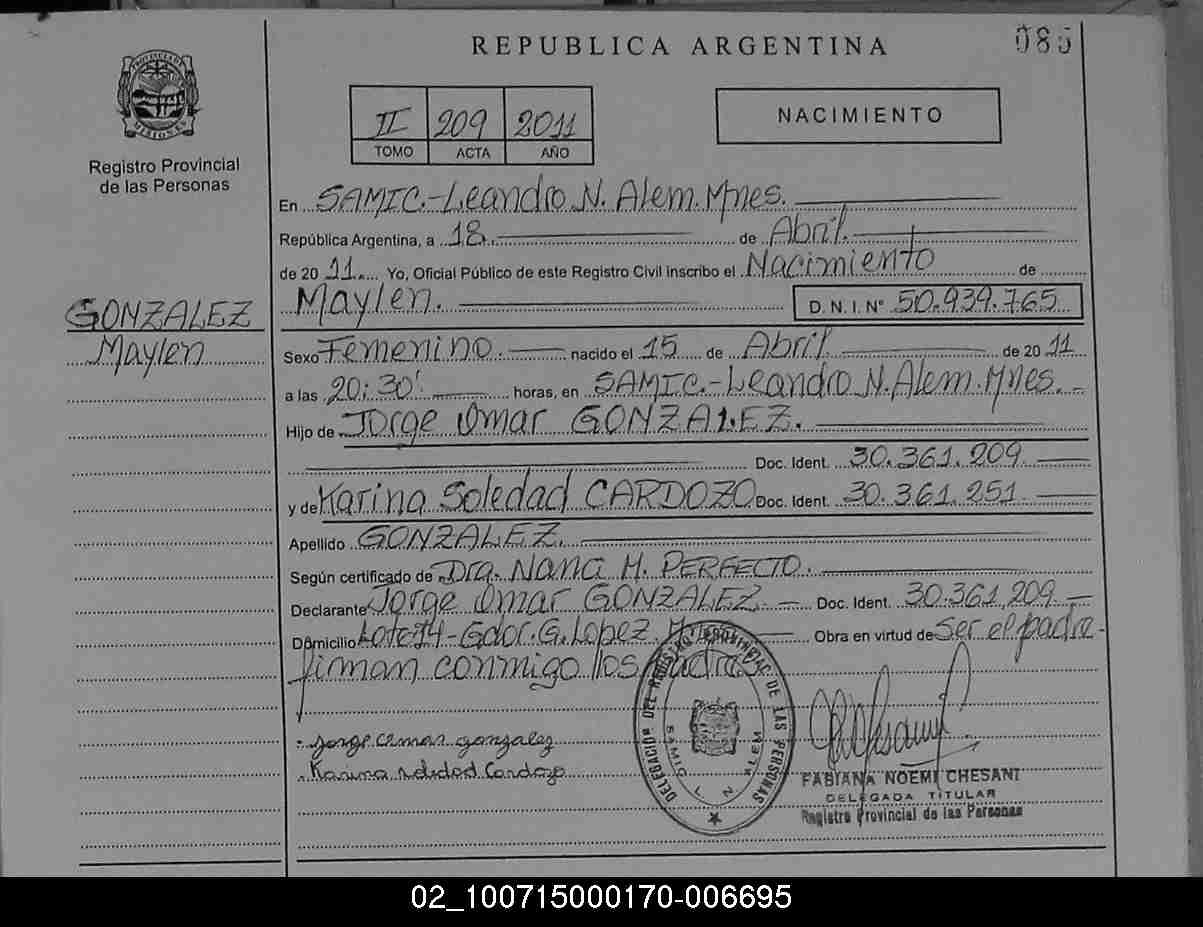 REPUBLICA ARGENTINA
085
PROVINCIA DE MISIONES
Registro Provincial
de las Personas
II 209 2011
TOMO ACTA AÑO
NACIMIENTO
En SAMIC.-Leandro N. Alem. Mnes.
República Argentina, a 18. de Abril.
de 20 11. Yo, Oficial Público de este Registro Civil inscribo el Nacimiento de
Maylen. D.N.I. Nº 50.939.765
GONZALEZ
Maylen
Sexo Femenino. nacido el 15 de Abril de 20 11
a las 20:30' horas, en SAMIC.-Leandro N. Alem. Mnes.-
Hijo de Jorge Omar GONZALEZ.
Doc. Ident. 30.361.209
y de Karina Soledad CARDOZO Doc. Ident. 30.361.251
Apellido GONZALEZ.
Según certificado de Dra. Nanci M. PERFECTO.
Declarante Jorge Omar GONZALEZ.- Doc. Ident. 30.361.209
Domicilio Lote 74-Gdor. G. Lopez. Obra en virtud de Ser el padre-
firman conmigo los padres
Jorge Omar gonzalez
Karina soledad Cardozo
DELEGACION DEL REGISTRO PROVINCIAL DE LAS PERSONAS
SAMIC L N ALEM
FABIANA NOEMI CHESANI
DELEGADA TITULAR
Registro Provincial de las Personas
02_100715000170-006695